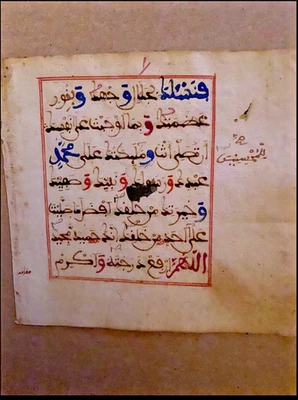 فنسئلك بجلال وجهك وبنور
عظمتك وبما اوجبت على نفسك
ان تصلي انت وملئكتك على محمد
عبدك ورسولك ونبيك وصفيك
وخيرتك من خلقك افضل ما صليت
على احد من خلقك انك حميد مجيد
اللهم ارفع درجته واكرم